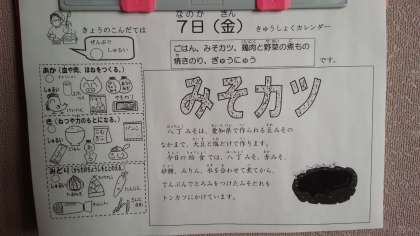 きょうのこんだては
ぜんぶで
しゅるい
なのか きん
7日(金)
きゅうしょくカレンダー
ごはん、みそカツ、鶏肉と野菜の煮もの
焼きのり、ぎゅうにゅう
です。
あか(血や肉、ほねをつくる。)
しゅるい
き(ねつや力のもとになる。)
しゅるい
みどり(からだのちょうしをととのえる。)
しゅるい
みそカツ
八丁みそは、愛知県で作られる豆みその
なかまで、大豆と塩だけで作ります。
今日の給食では、八丁みそ、赤みそ、
砂糖、みりん、水を合わせて煮てから、
でんぷんでとろみをつけたみそだれを
トンカツにかけています。